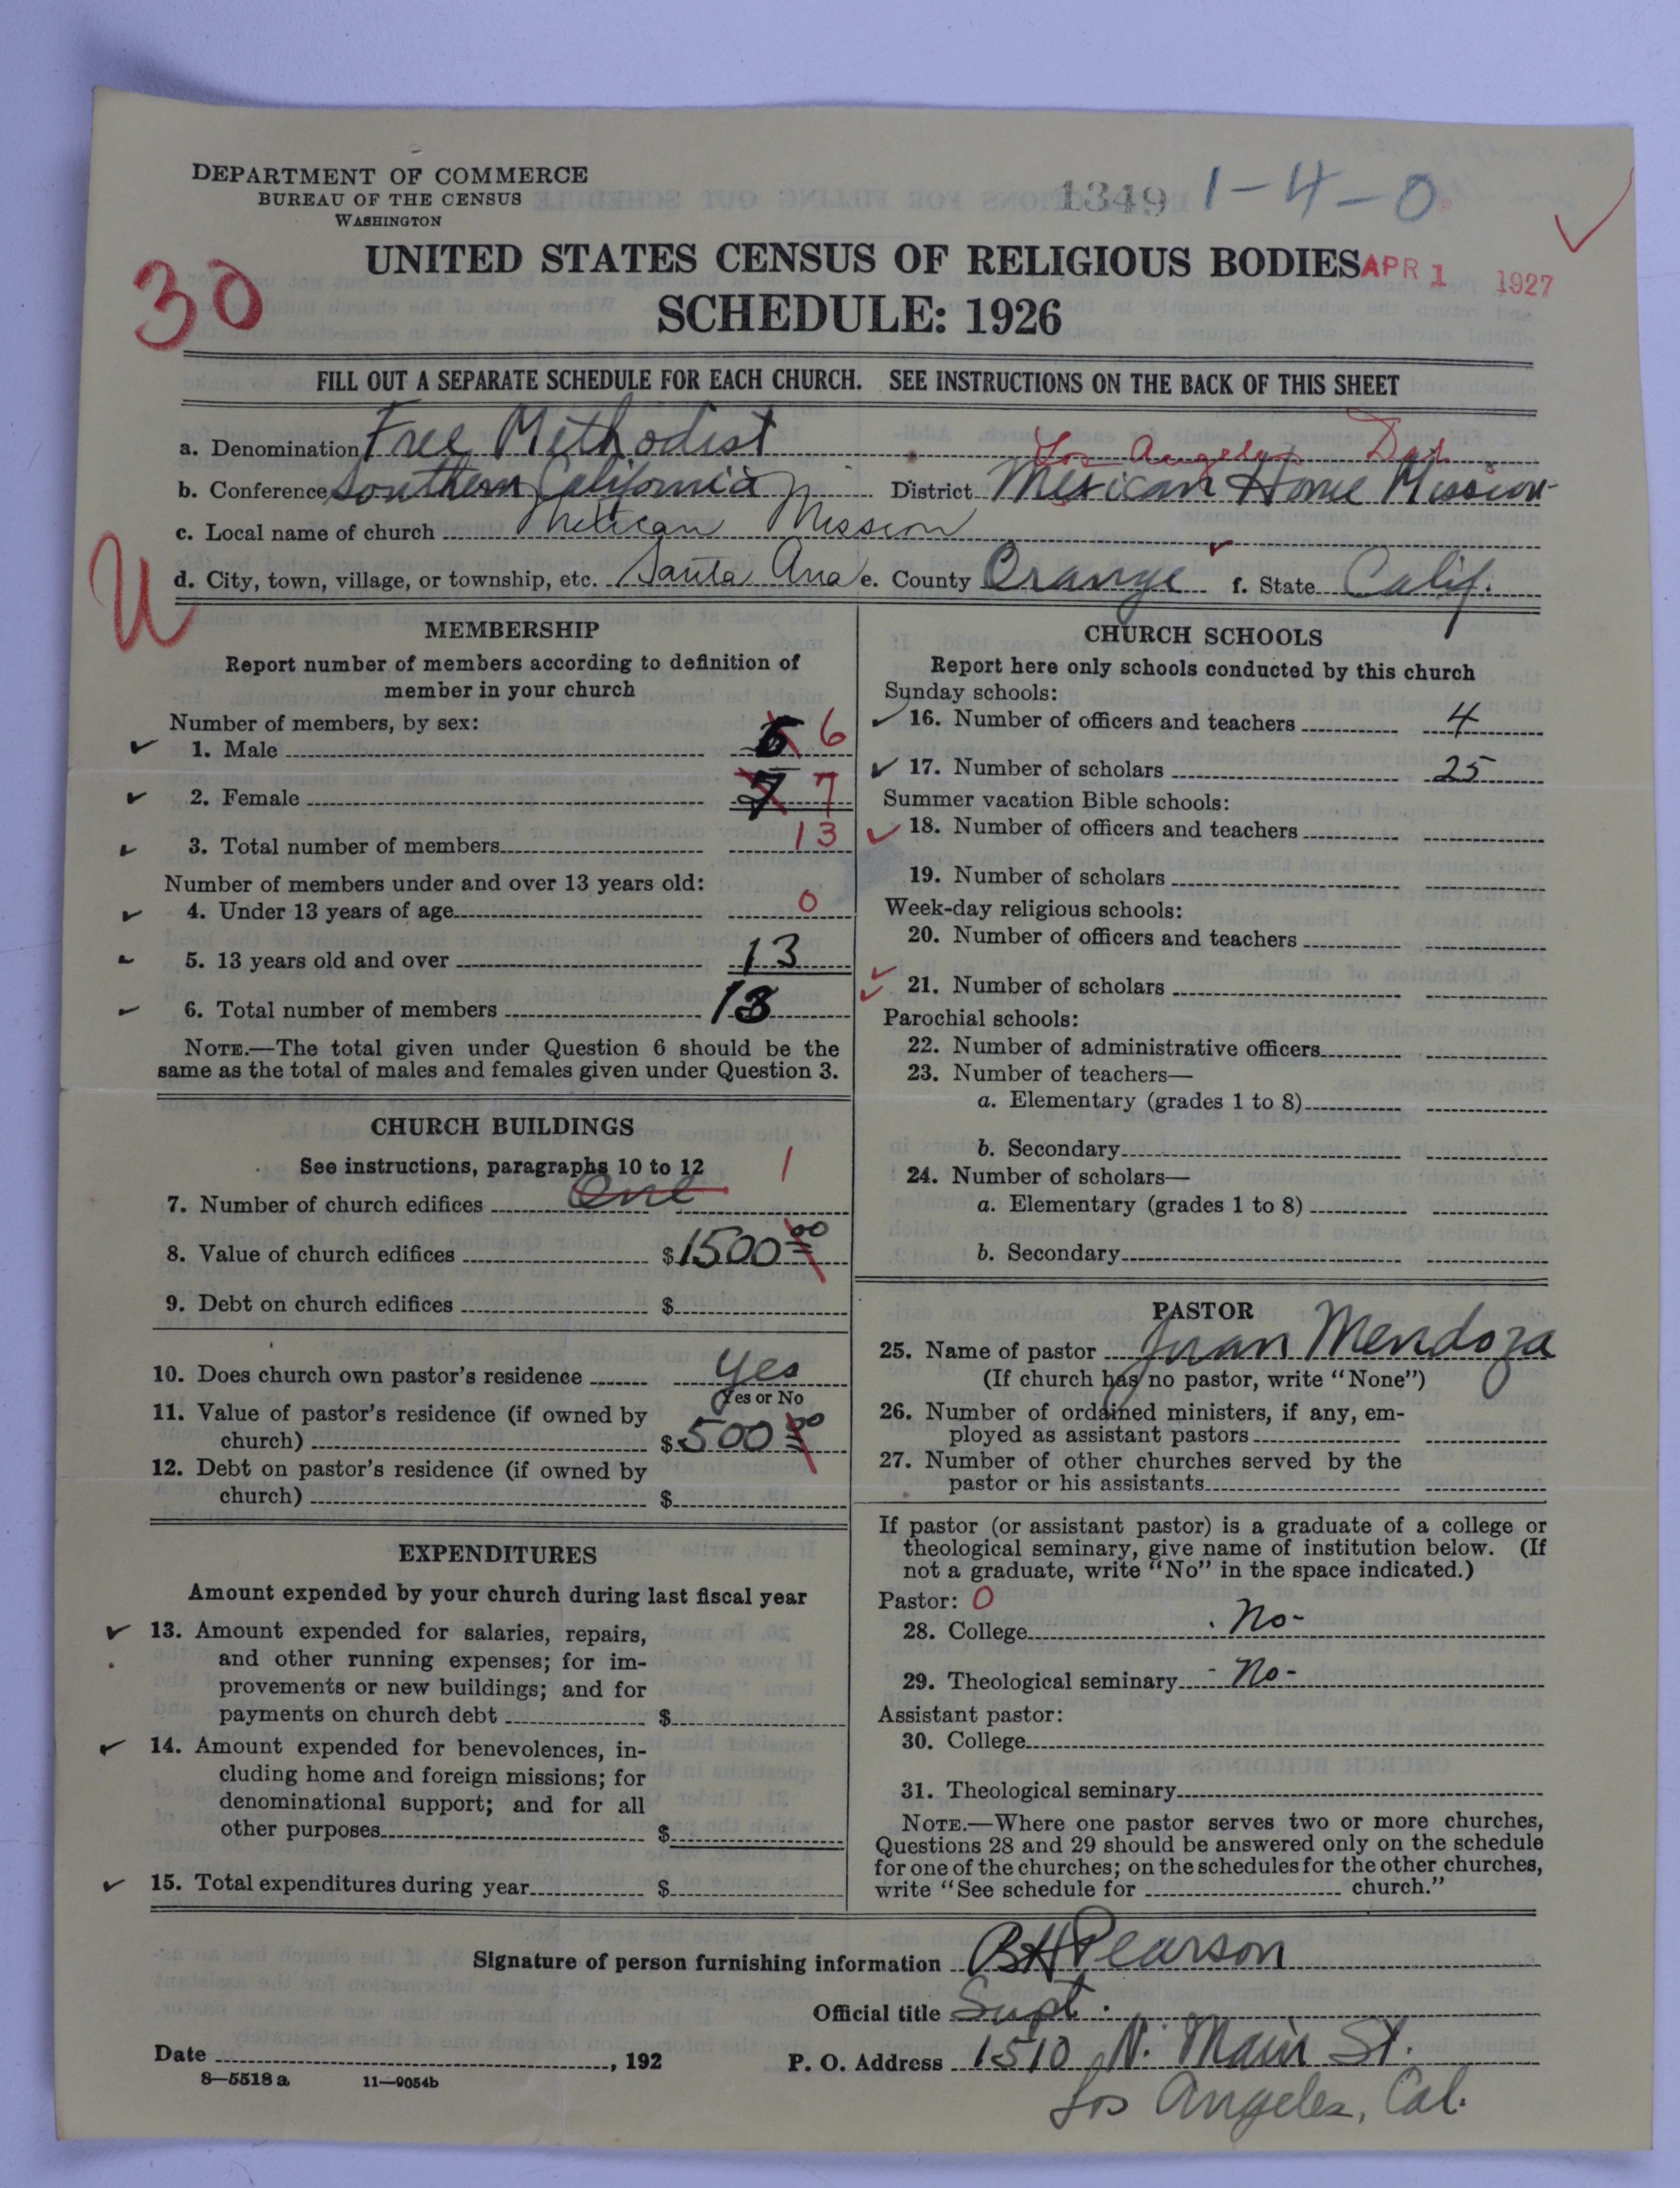 DEPARTMENT OF COMMERCE
BUREAU OF THE CENSUS
WASHINGTON
1349 1-4-0
30
UNITED STATES CENSUS OF RELIGIOUS BODIES APR 1 1927
SCHEDULE: 1926
FILL OUT A SEPARATE SCHEDULE FOR EACH CHURCH. SEE INSTRUCTIONS ON THE BACK OF THIS SHEET
Los Angeles Dist
a. Denomination Free Methodist
b. Conference Southern California District Mexican Home Mission
c. Local name of church Mexican Mission
U
d. City, town, village, or township, etc. Santa Ana e. County Orange f. State Calif.
MEMBERSHIP
Report number of members according to definition of
member in your church
Number of members, by sex:
1. Male 6 6
2. Female 7 7
3. Total number of members 13
Number of members under and over 13 years old:
4. Under 13 years of age 0
5. 13 years old and over 13
6. Total number of members 13
NOTE.—The total given under Question 6 should be the
same as the total of males and females given under Question 3.
CHURCH BUILDINGS
See instructions, paragraphs 10 to 12 1
7. Number of church edifices One
8. Value of church edifices $1500 00
9. Debt on church edifices $
10. Does church own pastor's residence Yes
Yes or No
11. Value of pastor's residence (if owned by
church) $500 00
12. Debt on pastor's residence (if owned by
church) $
EXPENDITURES
Amount expended by your church during last fiscal year
13. Amount expended for salaries, repairs,
and other running expenses; for im-
provements or new buildings; and for
payments on church debt $
14. Amount expended for benevolences, in-
cluding home and foreign missions; for
denominational support; and for all
other purposes $
15. Total expenditures during year $
CHURCH SCHOOLS
Report here only schools conducted by this church
Sunday schools:
16. Number of officers and teachers 4
17. Number of scholars 25
Summer vacation Bible schools:
18. Number of officers and teachers
19. Number of scholars
Week-day religious schools:
20. Number of officers and teachers
21. Number of scholars
Parochial schools:
22. Number of administrative officers
23. Number of teachers—
a. Elementary (grades 1 to 8)
b. Secondary
24. Number of scholars—
a. Elementary (grades 1 to 8)
b. Secondary
PASTOR
25. Name of pastor Juan Mendoza
(If church has no pastor, write "None")
26. Number of ordained ministers, if any, em-
ployed as assistant pastors
27. Number of other churches served by the
pastor or his assistants
If pastor (or assistant pastor) is a graduate of a college or
theological seminary, give name of institution below. (If
not a graduate, write "No" in the space indicated.)
Pastor: 0
28. College No-
29. Theological seminary - No-
Assistant pastor:
30. College
31. Theological seminary
NOTE.—Where one pastor serves two or more churches,
Questions 28 and 29 should be answered only on the schedule
for one of the churches; on the schedules for the other churches,
write "See schedule for church."
Signature of person furnishing information BH Pearson
Official title Supt.
Date , 192 P. O. Address 1510 N. Main St.
8—5518 a 11—9054b
Los Angeles, Cal.